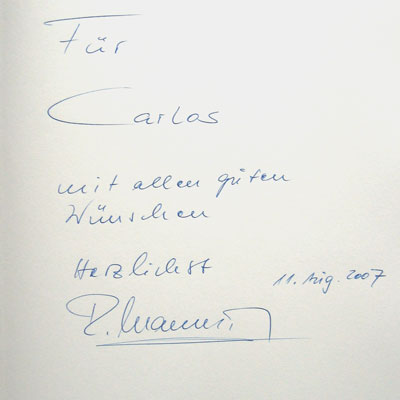 Für
Carlos
mit allen guten
Wünschen
Herzlichst
11. Aug. 2007